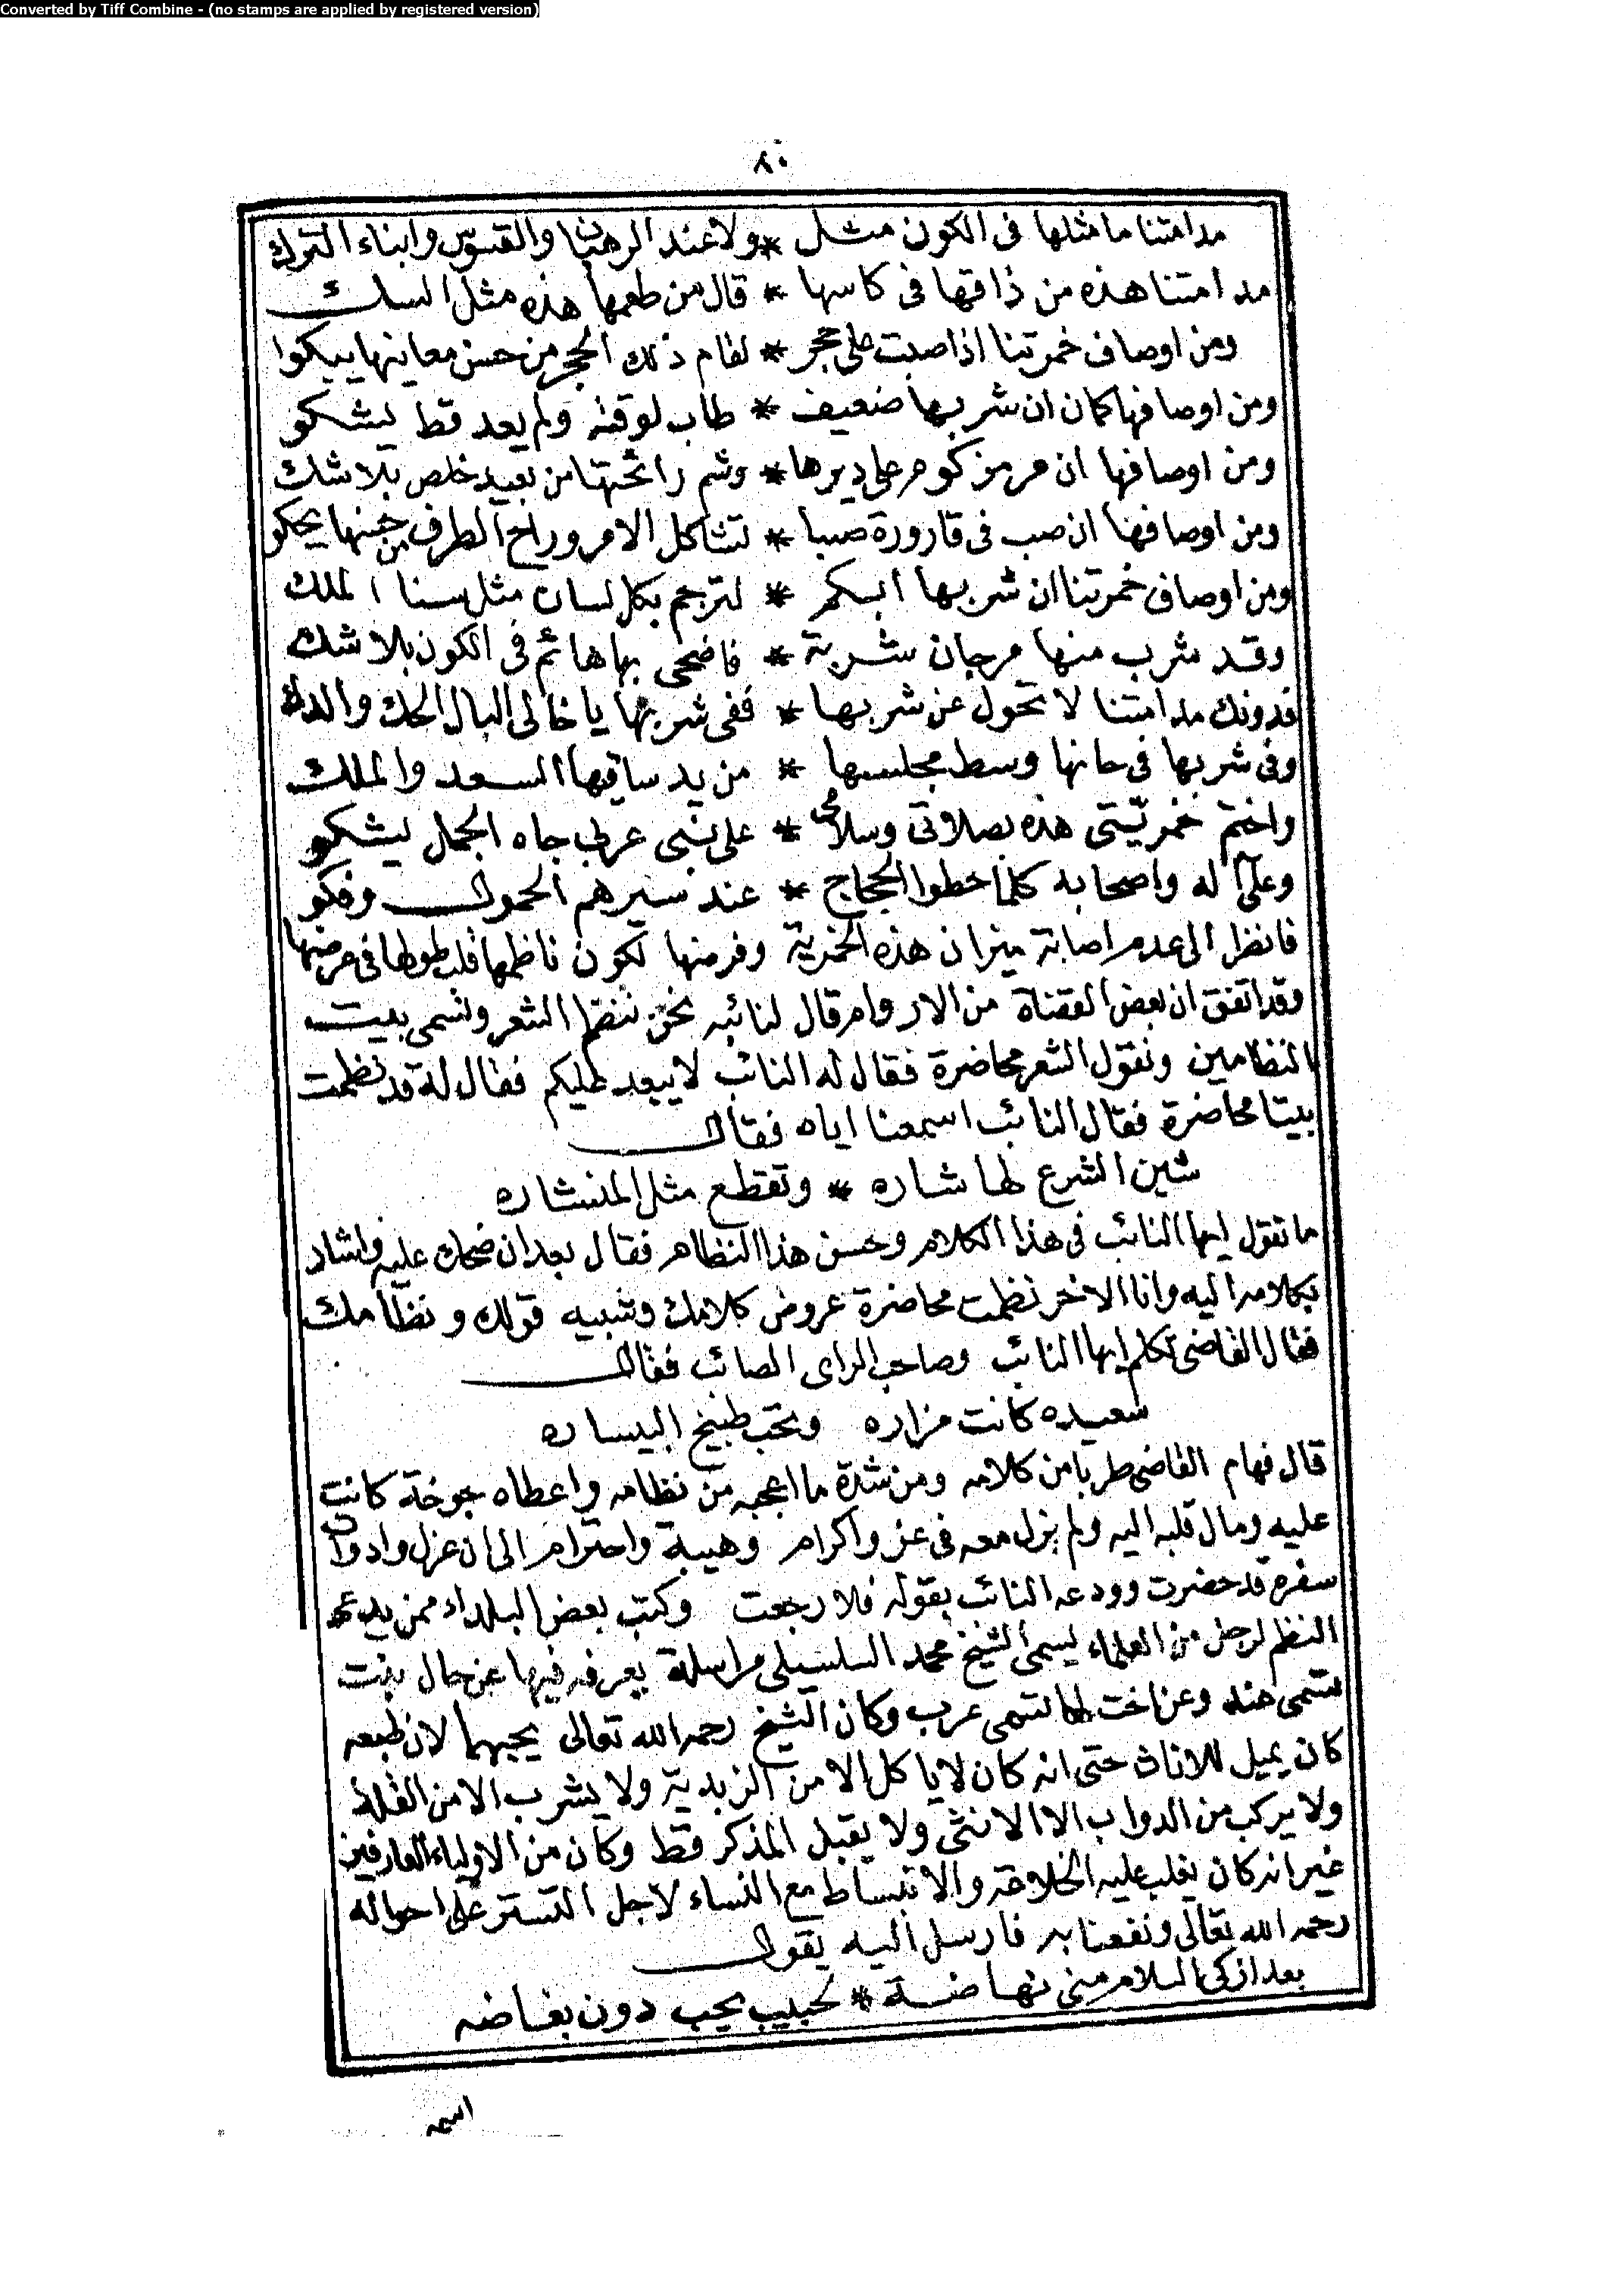 Converted by Tiff Combine - (no stamps are applied by registered version)
٨٠
مدامتنا ما مثلها فى الكون مثل * ولا عند الرهبان والقسوس وابناء الترك
مدامتنا هذه من ذاقها فى كاسها * قال من طعمها هذه مثل السك
ومن اوصاف خمرتنا اذا صبت على حجر * لقام ذلك الحجر من حسن معاينها يبكوا
ومن اوصافها كمان ان شربها ضعيف * طاب لوقته ولم يعد قط يشكو
ومن اوصافها ان مر مزكوم على ديرها * وشم رائحتها من بعيد خلص بلا شك
ومن اوصافها ان صب فى قارورة صبا * تشاكل الامر وراح الطرف من حسنها يحكو
ومن اوصاف خمرتنا ان شربها ابكم * لترجم بكل لسان مثل سنا الملك
وقد شرب منها مرجان شربة * فاضحى بها هائم فى الكون بلا شك
فدونك مدامتنا لا تحول عن شربها * ففى شربها يا خالى البال الحك والدك
وفى شربها فى حانها وسط مجلسها * من يد ساقيها السعد والملك
واختم خمريتى هذه بصلاتى وسلامى * على نبى عربى جاه الجمل يشكو
وعلى اله واصحابه كلما خطوا الحجاج * عند سيرهم الحمول وفكو
فانظر الى عدم اصابة ميزان هذه الخمرية وفرضها لكون ناظمها فى عرضها
وقد اتفق ان بعض القضاة من الاروام قال لنائبه نحن ننظم الشعر ونسمى ببيت
النظامين ونقول الشعر محاضرة فقال له النائب لا يبعد عليكم فقال له قد نظمت
بيتا محاضرة فقال النائب اسمعنا اياه فقال
شين الشرع لها شاره * وتقطع مثل المنشاره
ما تقول ايها النائب فى هذا الكلام وحسن هذا النظام فقال بعد ان ضحك عليه واشار
بكلامه اليه وانا الاخر نظمت محاضرة عروض كلامك وشبيه قولك ونظامك
فقال القاضى تكلم ايها النائب وصاحب الراى الصائب فقال
سعيده كانت مزاره وتحب طبيخ البيساره
قال فهام القاضى طربا من كلامه ومن شدة ما اعجبه من نظامه واعطاه جوخة كانت
عليه ومال قلبه اليه ولم يزل معه فى عز واكرام وهيبة واحترام الى ان عزل وادوات
سفره قد حضرت وودعه النائب بقوله فلا رجعت وكتب بعض البلداء ممن يدعى
النظم لرجل من العلماء يسمى الشيخ محمد السلسيلى مراسلة يعرفه فيها عن حال بنت
تسمى هند وعن اخت لها تسمى عرب وكان الشيخ رحمه الله تعالى يحبهما لان طبعه
كان يميل للاناث حتى انه كان لا ياكل الا من الزبدية ولا يشرب الا من القلة
ولا يركب من الدواب الا الانثى ولا يقبل المذكر قط وكان من الاولياء العارفين
غير انه كان يغلب عليه الخلاعة والانبساط مع النساء لاجل التستر على احواله
رحمه الله تعالى ونفعنا به فارسل اليه يقول
بعد ازكى السلام منى نهاضة * لحبيب يحب دون بغاضه
اسمه